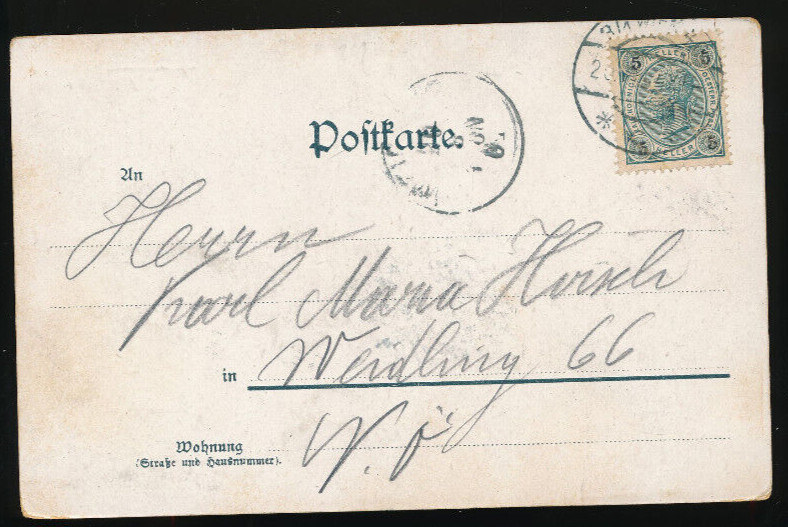 Postkarte.
An
Herrn
Karl Maria
in Weidling 66
N. Ö.
Wohnung
(Straße und Hausnummer).
5 5
5 5